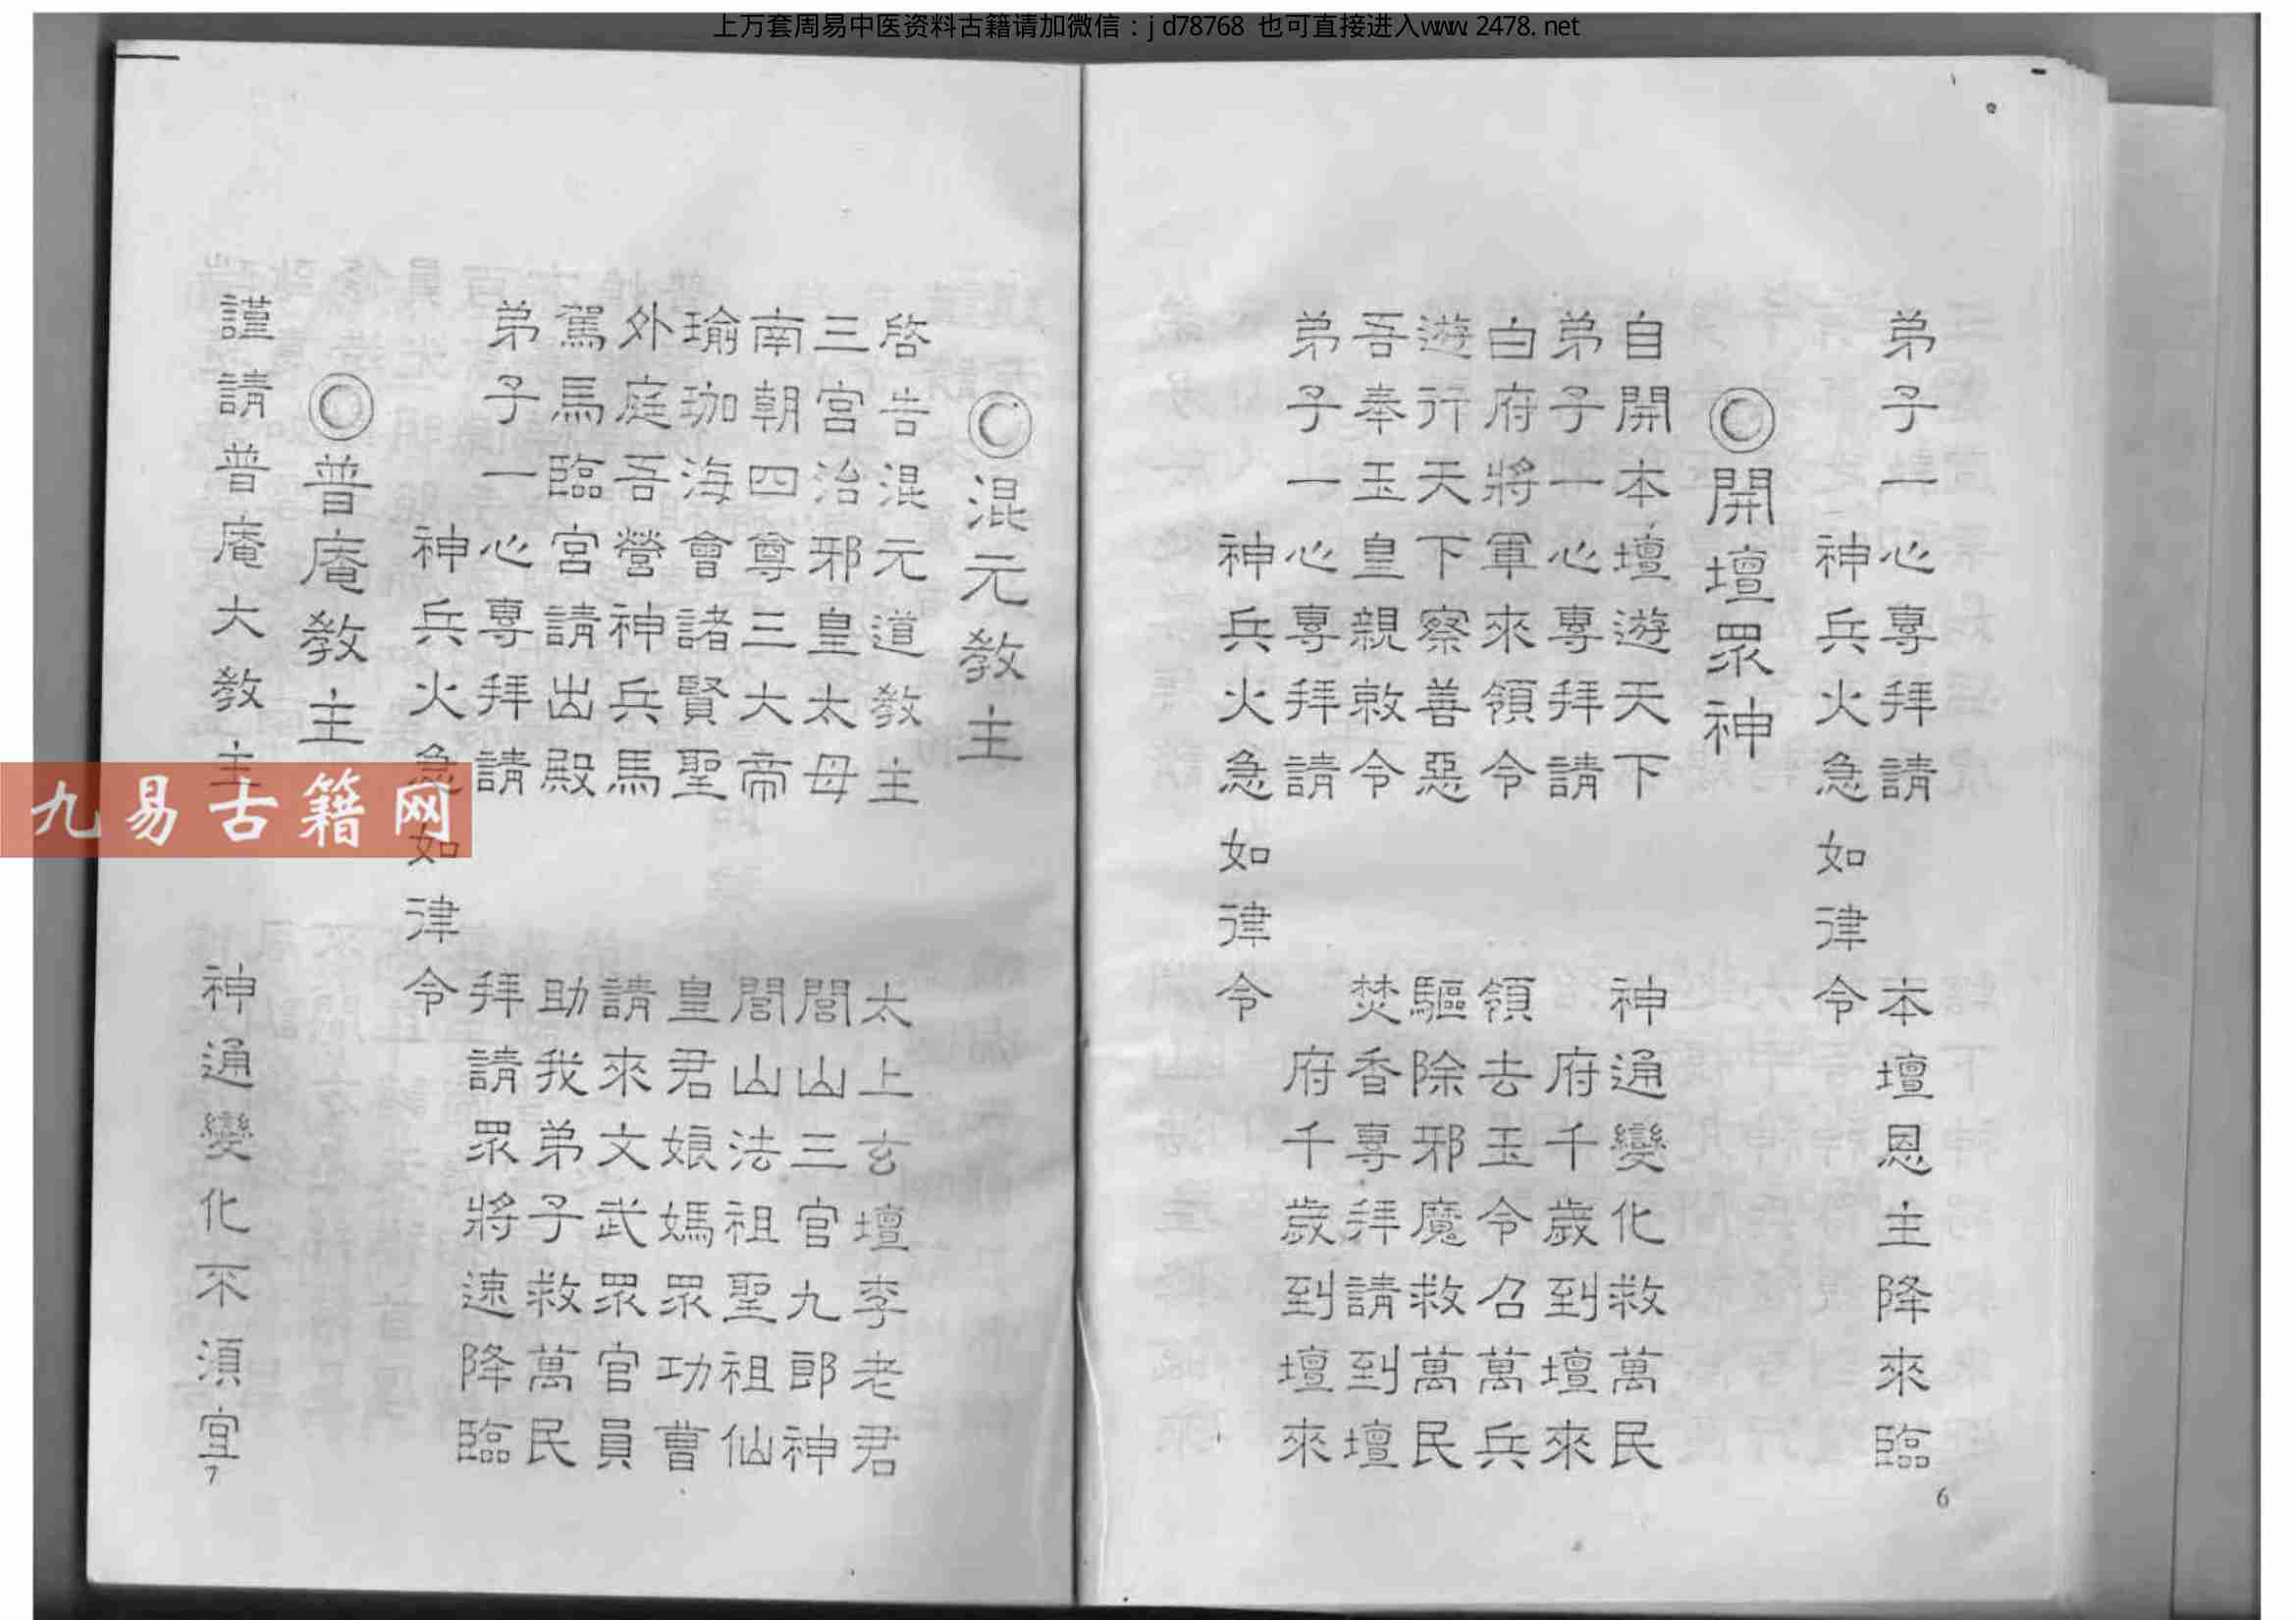 上万套周易中医资料古籍请加微信：jd78768 也可直接进入www.2478.net
弟子一心專拜請 本壇恩主降來臨
神兵火急如律令
◎開壇眾神
自開本壇遊天下 神通變化救萬民
弟子一心專拜請 府千歲到壇來
白府將軍來領令 領去玉令召萬兵
遊行天下察善惡 驅除邪魔救萬民
吾奉玉皇親敕令 焚香專拜請到壇
弟子一心專拜請 府千歲到壇來
神兵火急如律令
6
◎混元教主
啓告混元道教主 太上玄壇李老君
三宮治邪皇太母 閭山三官九郎神
南朝四尊三大帝 閭山法祖聖祖仙
瑜珈海會諸賢聖 皇君娘媽眾功曹
外庭吾營神兵馬 請來文武眾官員
駕馬臨宮請出殿 助我弟子救萬民
弟子一心專拜請 拜請眾將速降臨
神兵火急如律令
◎普庵教主
謹請普庵大教主 神通變化不須宜
7
九易古籍网